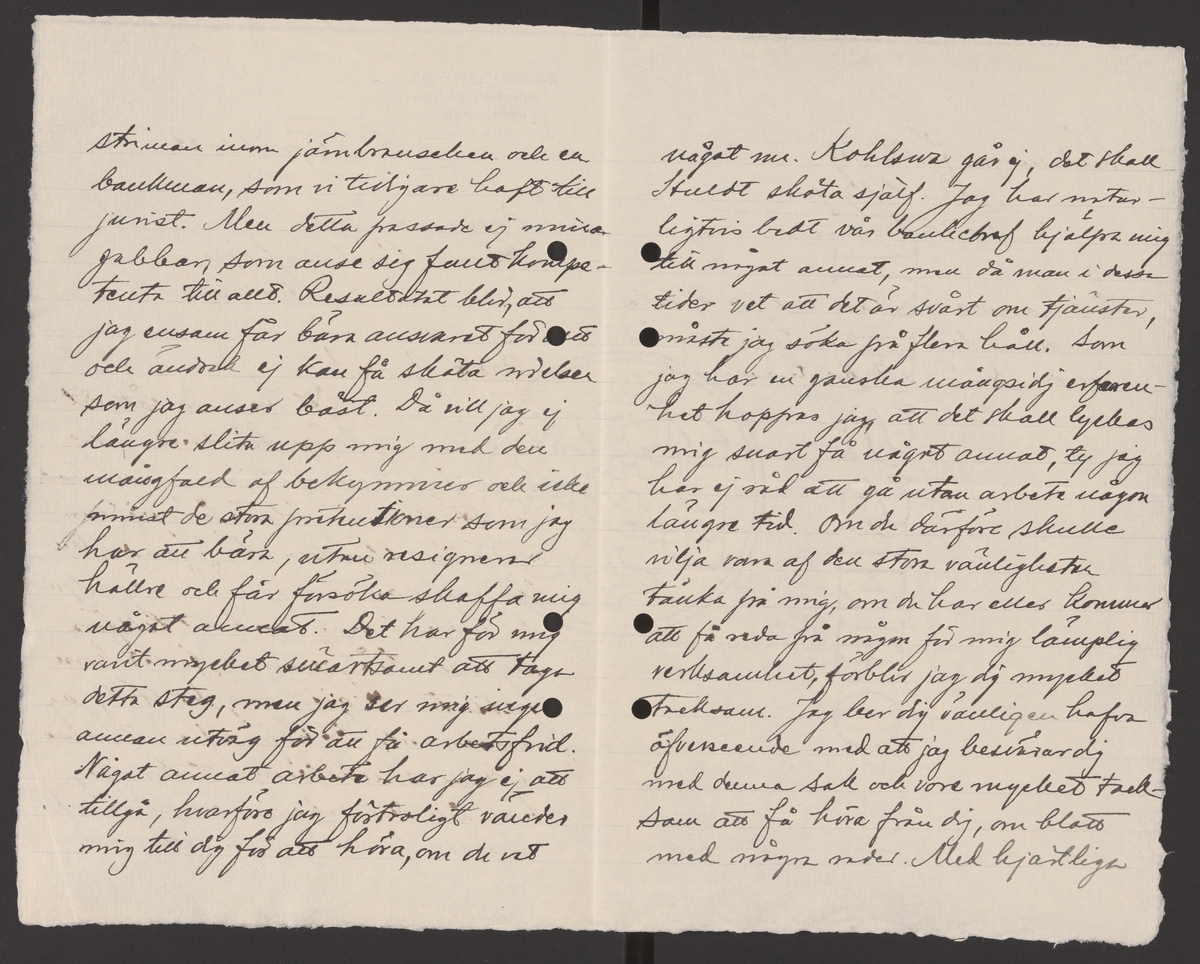 striman inom järnbranschen och en
bankman, som vi tidigare haft till
jurist. Men detta passade ej mina
gubbar, som anse sig fullt kompe-
tenta till allt. Resultatet blir, att
jag ensam får bära ansvaret för allt
och ändock ej kan få sköta rörelsen
som jag anser bäst. Då vill jag ej
längre slita upp mig med den
mångfald af bekymmer och icke
minst de stora som jag
har att bära, utan resignerar
hällre och får försöka skaffa mig
något annat. Det har för mig
varit mycket smärtsamt att taga
detta steg, men jag ser mig ingen
annan utväg för att få arbetsfrid.
Något annat arbete har jag ej att
tillgå, hvarföre jag förtroligt vänder
mig till dig för att höra, om du vet
något nu. Kohlswa går ej, det skall
Huldt sköta själf. Jag har natur-
ligtvis bedt vår bankchef hjälpa mig
till något annat, men då man i dessa
tider vet att det är svårt om tjänster,
måste jag söka på flera håll. Som
jag har en ganska mångsidig erfaren-
het hoppas jag, att det skall lyckas
mig snart få något annat, ty jag
har ej råd att gå utan arbete någon
längre tid. Om du därföre skulle
vilja vara af den stora vänligheten
tänka på mig, om du har eller kommer
att få reda på någon för mig lämplig
verksamhet, förblir jag dig mycket
tacksam. Jag ber dig vänligen hafva
öfverseende med att jag besvärar dig
med denna sak och vore mycket tack-
sam att få höra från dig, om blott
med några rader. Med hjärtliga